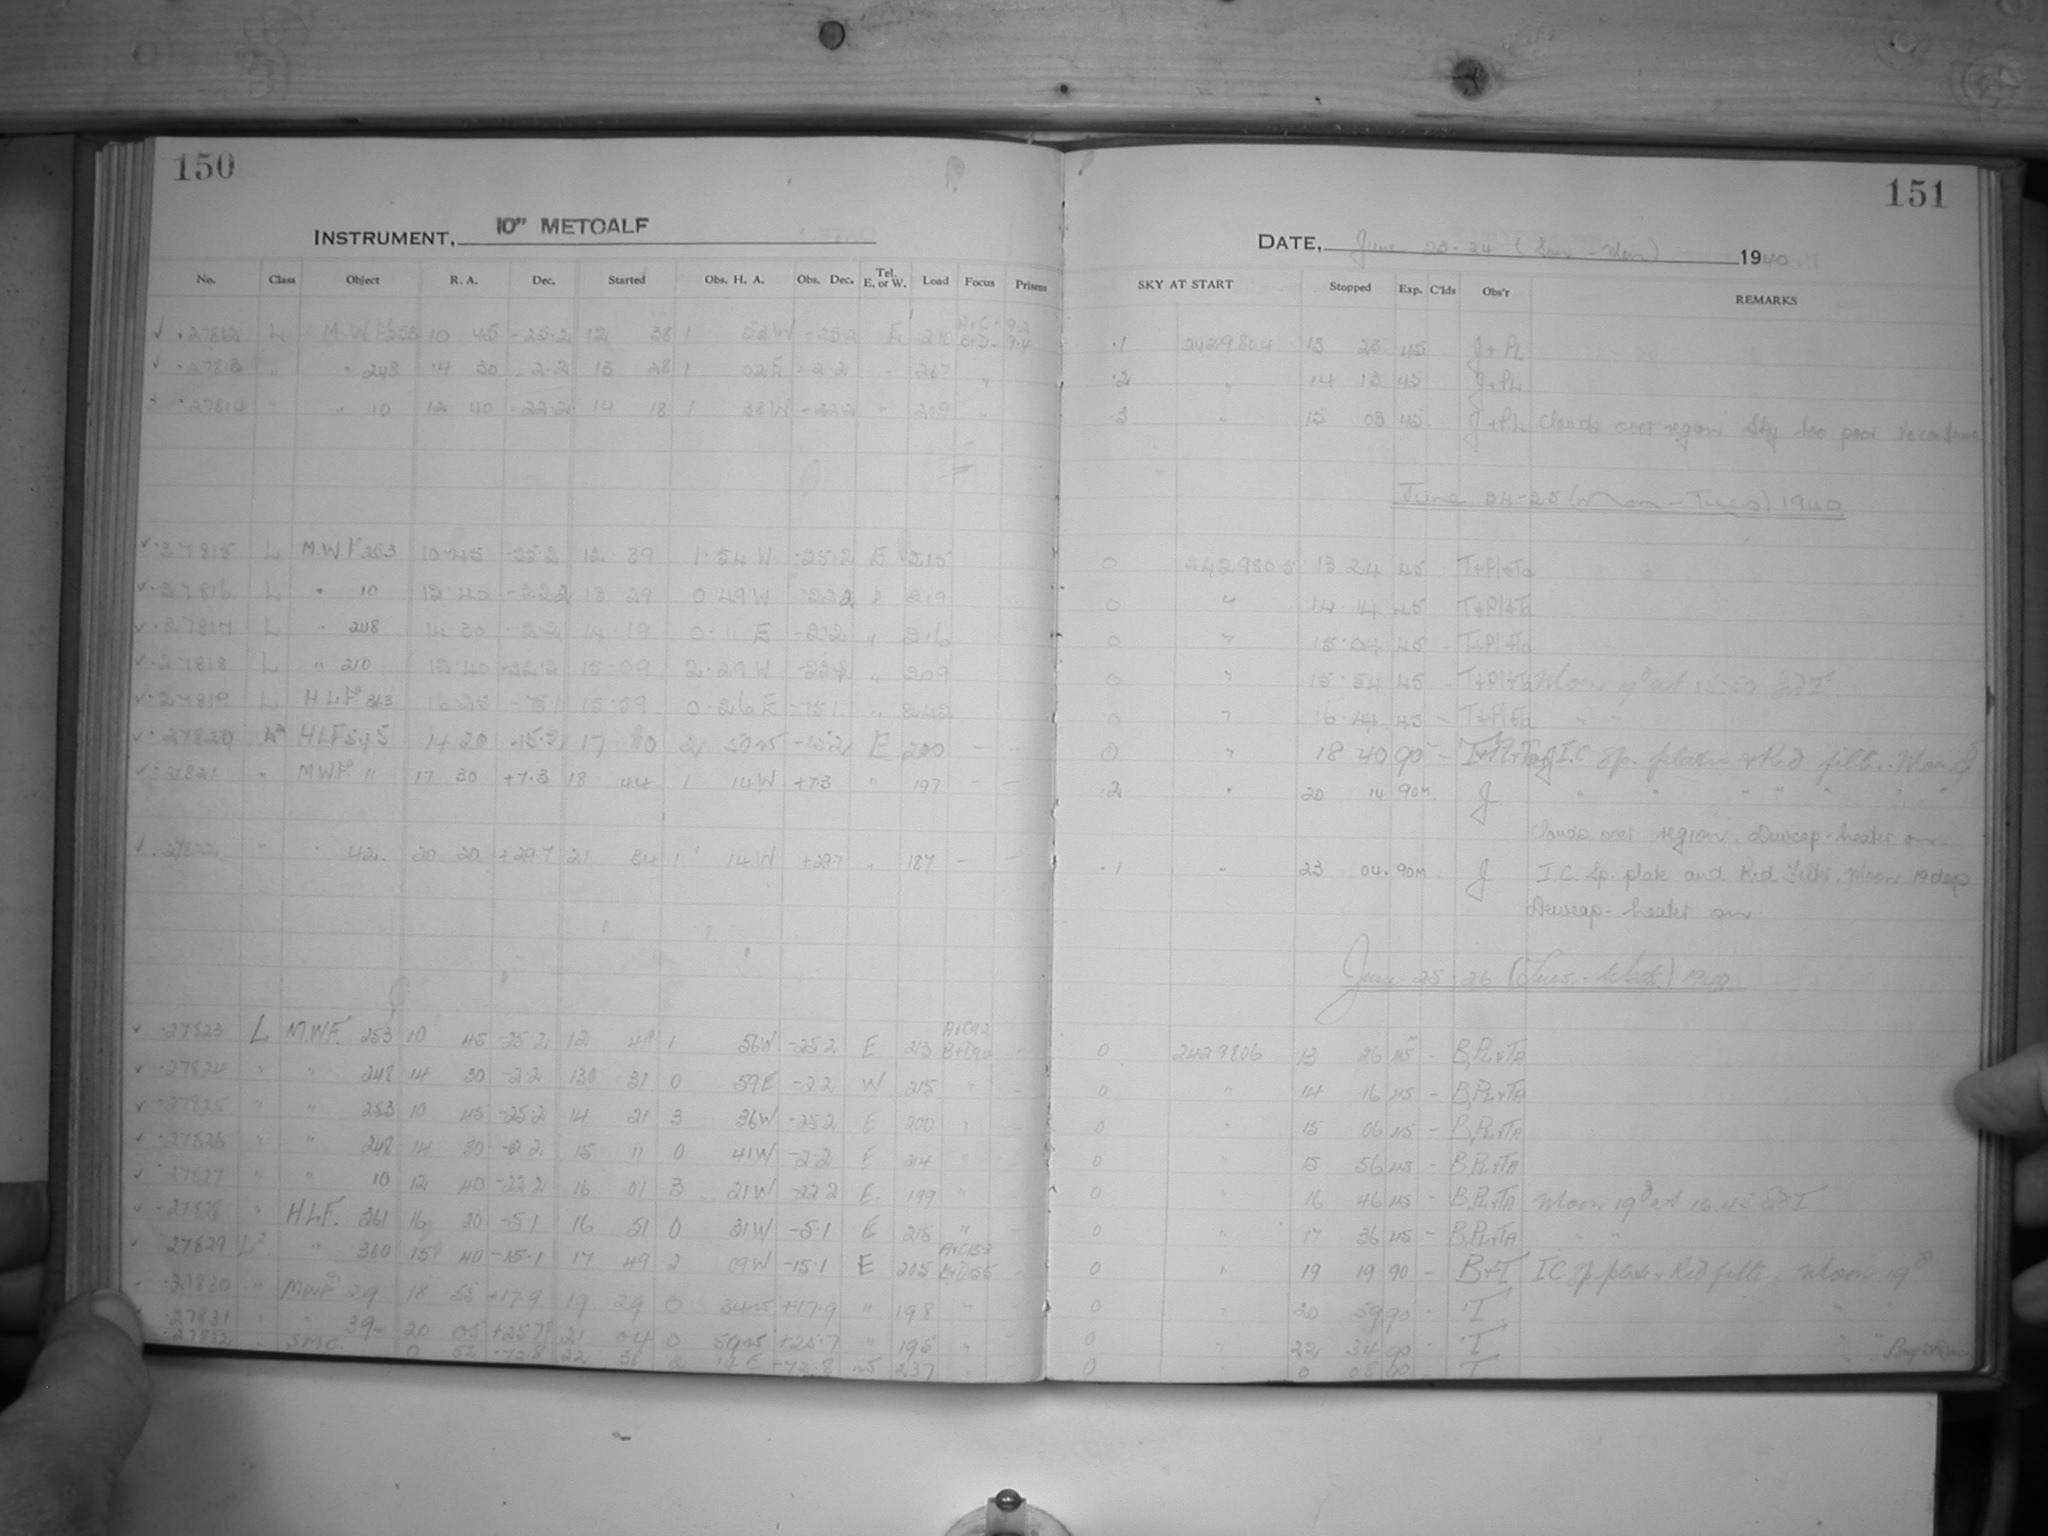 150
INSTRUMENT, 10" METCALF
No. Class Object R. A. Dec. Started Obs. H. A. Obs. Dec. Tel. E. or W. Load Focus Prisms
27812 L M.W.F. 253 10 45 -25.2 12 38 1 W -25.2 E 210
27813 " " 248 14 30 -2.2 13 28 1 02 E -2.2 " 267 "
27814 " " 10 12 40 -22.2 14 18 1 38 W -22.2 " 209 "
27815 L M.W.F. 253 10 45 -25.2 12 39 1 54 W -25.2 E 215
27816 L " 10 12 40 -22.2 13 29 0 49 W -22.2 219
27817 L " 248 14 30 -2.2 14 19 0 11 E -2.2 " 216
27818 L " 210 12 40 -22.2 15 09 2 29 W -22.2 " 209
27819 L HLF. 363 16 25 15 59 0 26 E " 242
27820 HLF 14 20 -15.2 17 10 2 50 W -15.2 E 200 - -
27821 " MWF. 11 17 30 +7.3 18 44 1 14 W +7.3 " 197 - -
27822 " " 42 20 20 +29.7 21 34 1 14 W +29.7 " 187 - -
27823 L M.W.F. 253 10 45 -25.2 12 41 1 56 W -25.2 E 213 -
27824 " " 248 14 30 -2.2 13 31 0 59 E -2.2 W 215 " -
27825 " " 253 10 45 -25.2 14 21 3 36 W -25.2 E 200 " -
27826 " " 248 14 30 -2.2 15 11 0 41 W -2.2 E 214 " -
27827 " " 10 12 40 -22.2 16 01 3 21 W -22.2 E 199 " -
27828 " HLF. 361 16 20 -5.1 16 51 0 31 W -5.1 E 215 " -
27829 L2 " 360 15 40 -15.1 17 49 2 09 W -15.1 E 205 -
27830 " MWF 29 18 55 +17.9 19 29 0 34 W +17.9 " 198 " -
27831 " " 39 20 05 +25.7 21 04 0 59 W +25.7 " 195 "
27832 " SMC 0 52 -72.8 22 38 E -72.8 W 237
151
DATE, June 23-24 (Sun - Mon) 1940
SKY AT START Stopped Exp. C'lds Obs'r REMARKS
.1 2429804 13 23 45 J + PL
.2 " 14 13 45 J + PL
.3 " 15 03 45 J + PL Clouds over region. Sky too poor to continue
June 24-25 (Mon - Tues) 1940
0 2429805 13 24 45 T+Pl+Ta
0 " 14 14 45 T+Pl+Ta
0 " 15 04 45 T+Pl+Ta
0 " 15 54 45 T+Pl+Ta Moon
0 " 16 44 45 - T+Pl+Ta " "
0 " 18 40 90 - I.C. Sp. plate & Red filter. Moon
.2 " 20 14 90m J " " " "
Clouds over region. Dewcap-heater on.
.1 " 23 04 90m J I C Sp. plate and Red Filter. Moon 19 days
Dewcap-heater on.
June 25-26 (Tues. - Weds.) 1940
0 2429806 13 26 45 - B, PL+TA
0 " 14 16 45 - B, PL+TA
0 " 15 06 45 - B, PL+TA
0 " 15 56 45 - B, PL+TA
0 " 16 46 45 - B, PL+TA Moon 19d at 16 45
0 " 17 36 45 - B, PL+TA " "
0 " 19 19 90 - B+T IC Sp. plate & Red filter. Moon 19d
0 " 20 59 90 - T "
0 " 22 34 90 - T " "
0 " 0 08 90 - T